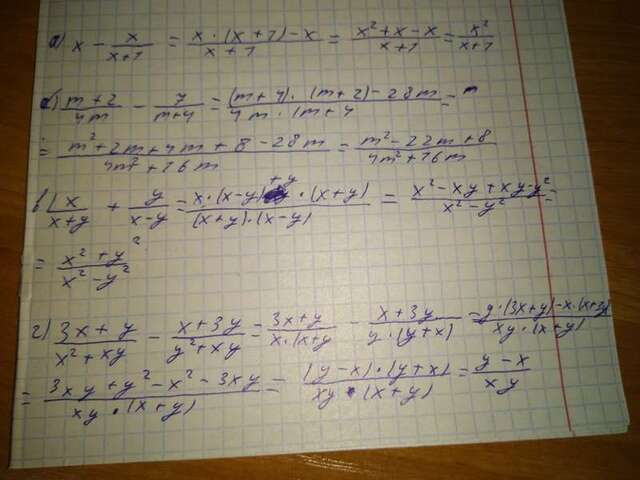 а) x - x/(x+1) = (x·(x+1)-x)/(x+1) = (x²+x-x)/(x+1) = x²/(x+1)
б) (m+2)/(4m) - 7/(m+4) = ((m+4)·(m+2)-28m)/(4m·(m+4 =
= (m²+2m+4m+8-28m)/(4m²+16m) = (m²-22m+8)/(4m²+16m)
в) x/(x+y) + y/(x-y) = (x·(x-y)+y·(x+y))/((x+y)·(x-y)) = (x²-xy+xy-y²)/(x²-y²) =
= (x²+y²)/(x²-y²)
г) (3x+y)/(x²+xy) - (x+3y)/(y²+xy) = (3x+y)/(x·(x+y) - (x+3y)/(y·(y+x)) = (y·(3x+y)-x·(x+3y))/(xy·(x+y))
= (3xy+y²-x²-3xy)/(xy·(x+y)) = ((y-x)·(y+x))/(xy·(x+y)) = (y-x)/(xy)